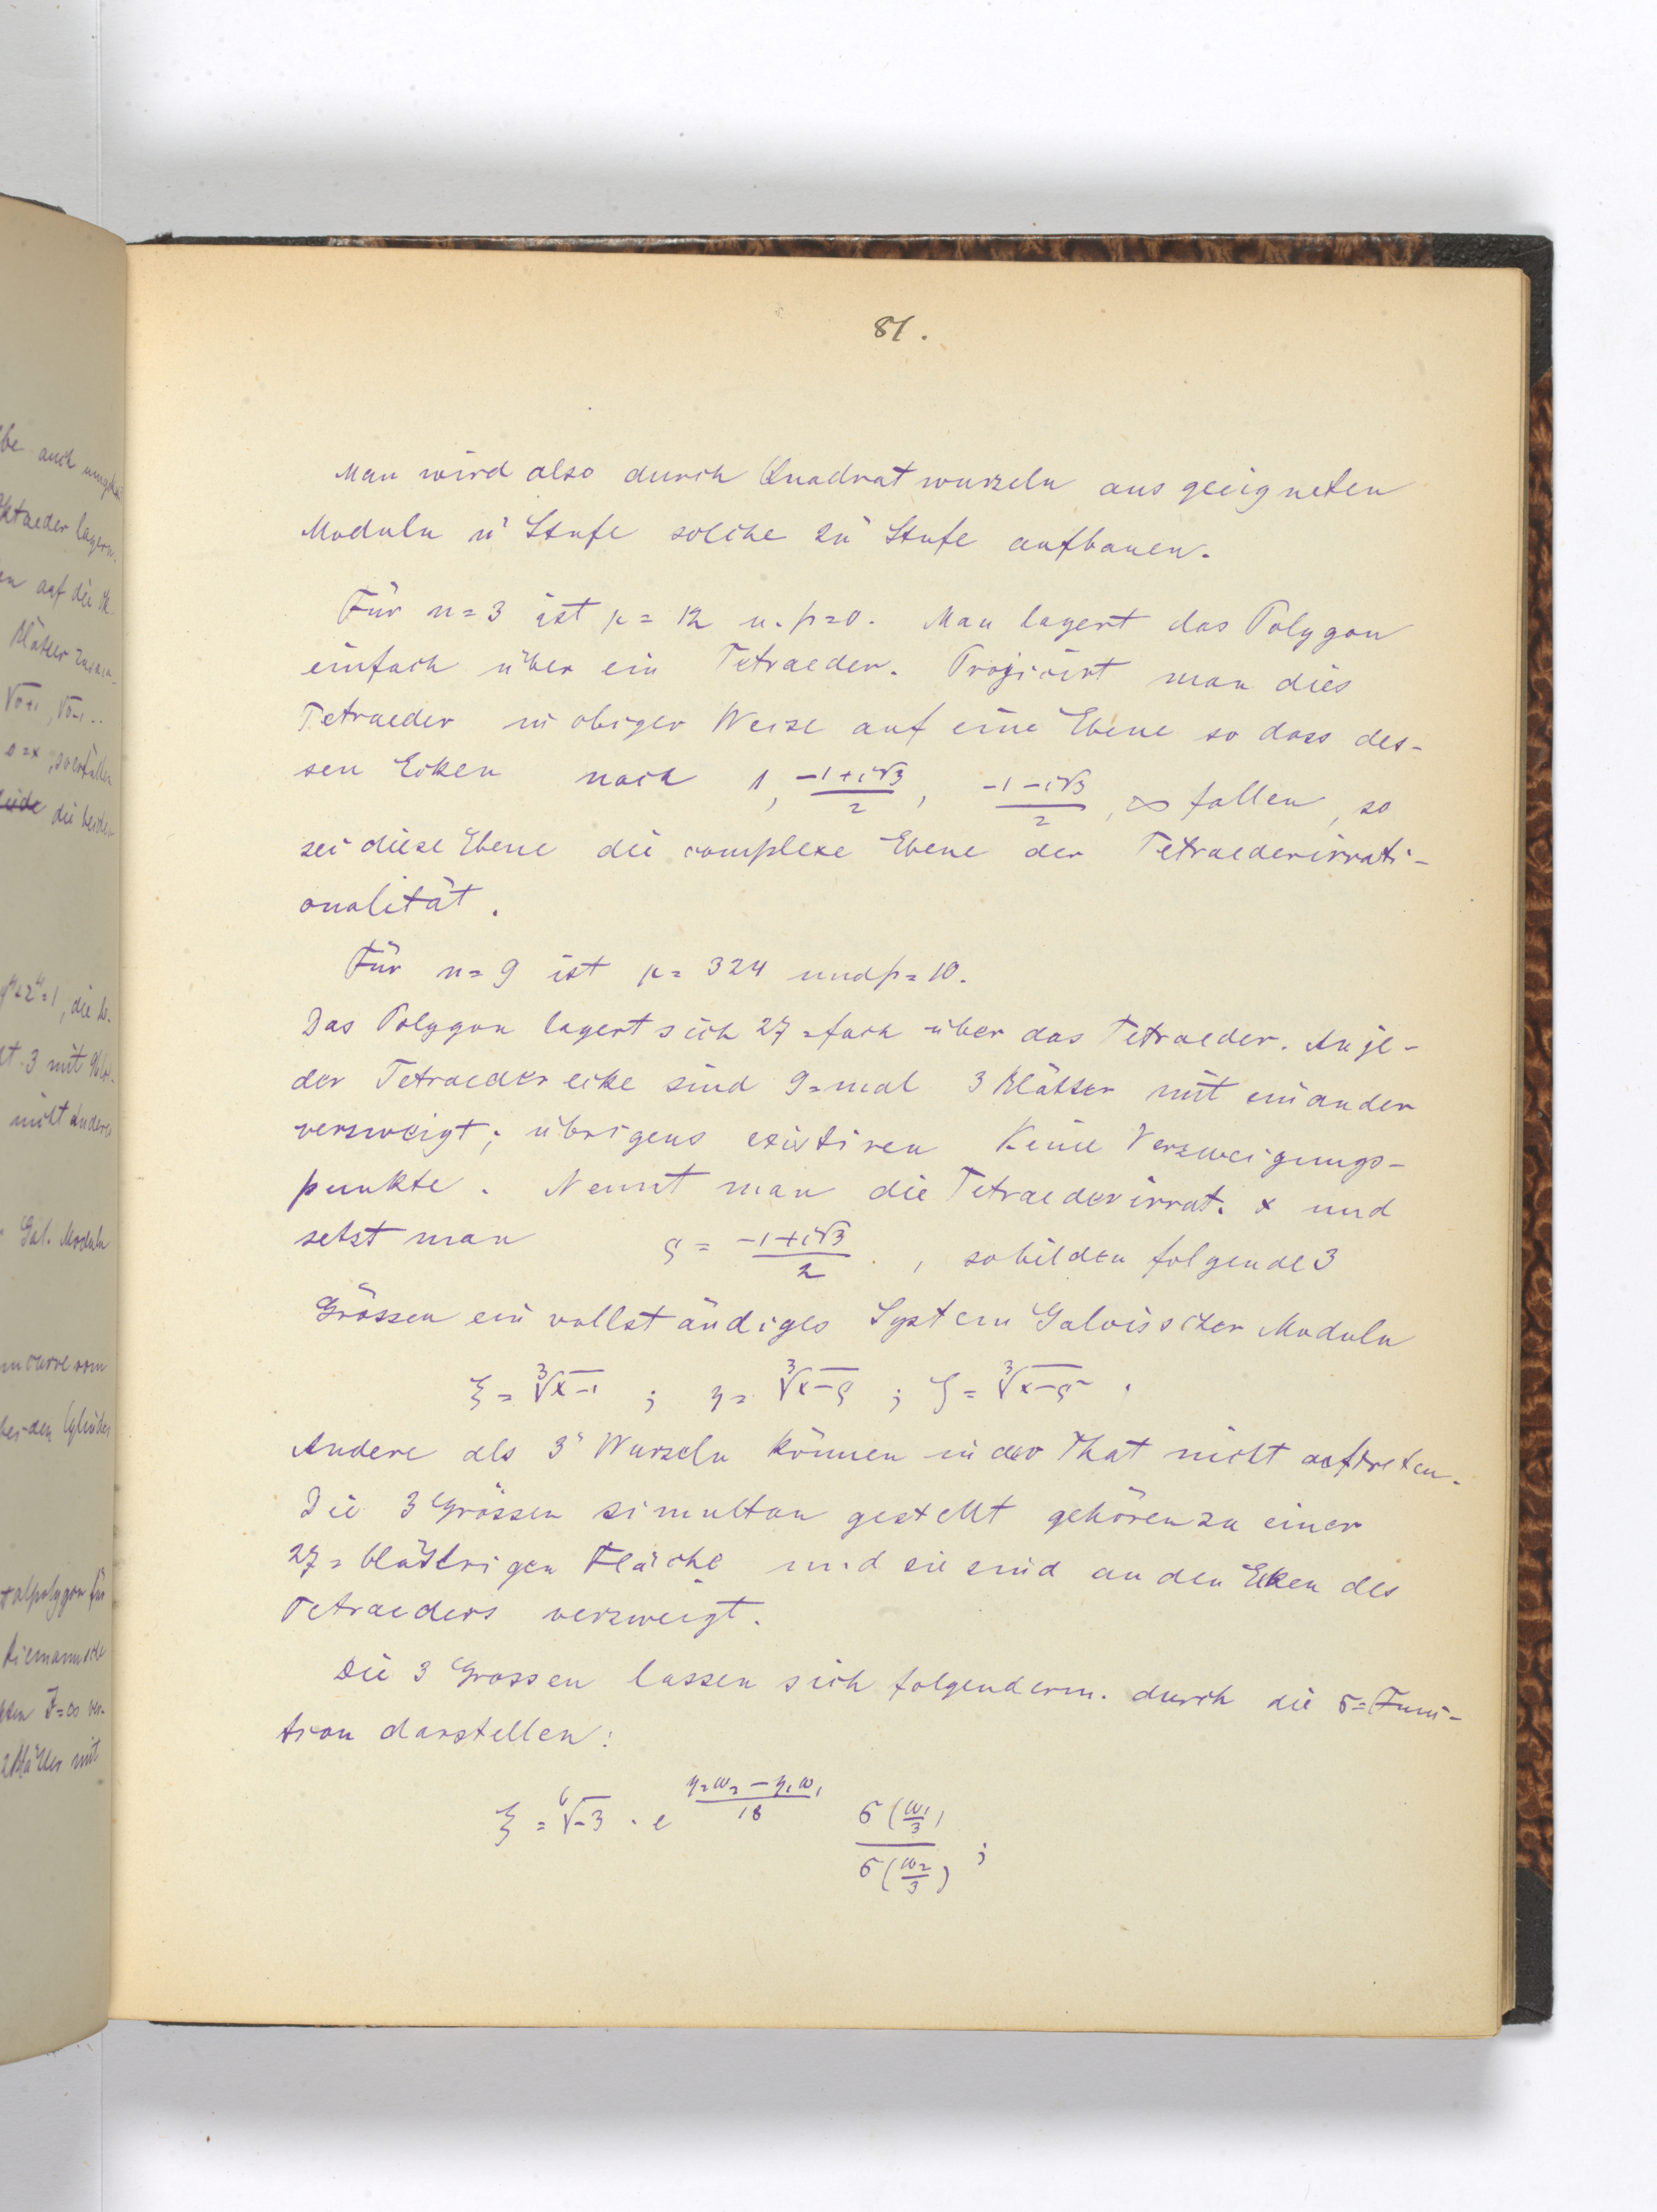 81.
Man wird also durch Quadratwurzeln aus geeigneten
Moduln nʳ Stufe solche 2nʳ Stufe aufbauen.
Für n=3 ist μ=12 u. p=0. Man lagert das Polygon
einfach über ein Tetraeder. Projicirt man dies
Tetraeder in obiger Weise auf eine Ebene so dass des-
sen Ecken nach 1, (-1+i√3)/2, (-1-i√3)/2, ∞ fallen, so
sei diese Ebene die complexe Ebene der Tetraederirrati-
onalität.
Für n=9 ist μ=324 und p=10.
Das Polygon lagert sich 27=fach über das Tetraeder. An je-
der Tetraederecke sind 9=mal 3 Blätter mit einander
verzweigt; übrigens existiren keine Verzweigungs-
punkte. Nennt man die Tetraederirrat. x und
setzt man ϱ = (-1+i√3)/2, so bilden folgende 3
Grössen ein vollständiges System Galois'scher Moduln
ξ = ∛(x-1); η = ∛(x-ϱ); ζ = ∛(x-ϱ²).
Andere als 3ᵗᵉ Wurzeln können in der That nicht auftreten.
Die 3 Grössen simultan gestellt gehören zu einer
27=blättrigen Fläche und sie sind an den Ecken des
Tetraeders verzweigt.
Die 3 Grossen lassen sich folgenderm. durch die σ=Func-
tion darstellen:
ξ = ⁶√-3 · e^((η₂ω₂-η₁ω₁)/18) σ(ω₁/3)/σ(ω₂/3);
be auch
Oktaeder lagern.
auf die
Blätter
√σ+1, √σ-1..
die beiden
=1, die
-3 mit
nicht andere
Gal. Moduln
curve vom
den Cylinder
talpolygon für
Riemannsche
J=∞ ver-
2 Blätter mit